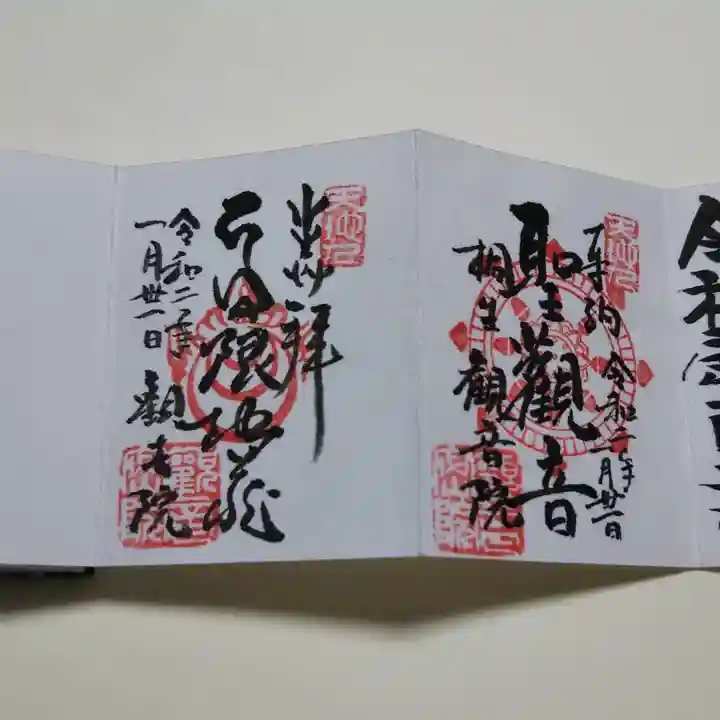 令和
奉納 令和二年一月廿一日
聖觀音
桐生 観音院
奉拝
日限地蔵
令和二年
一月廿一日
観音院